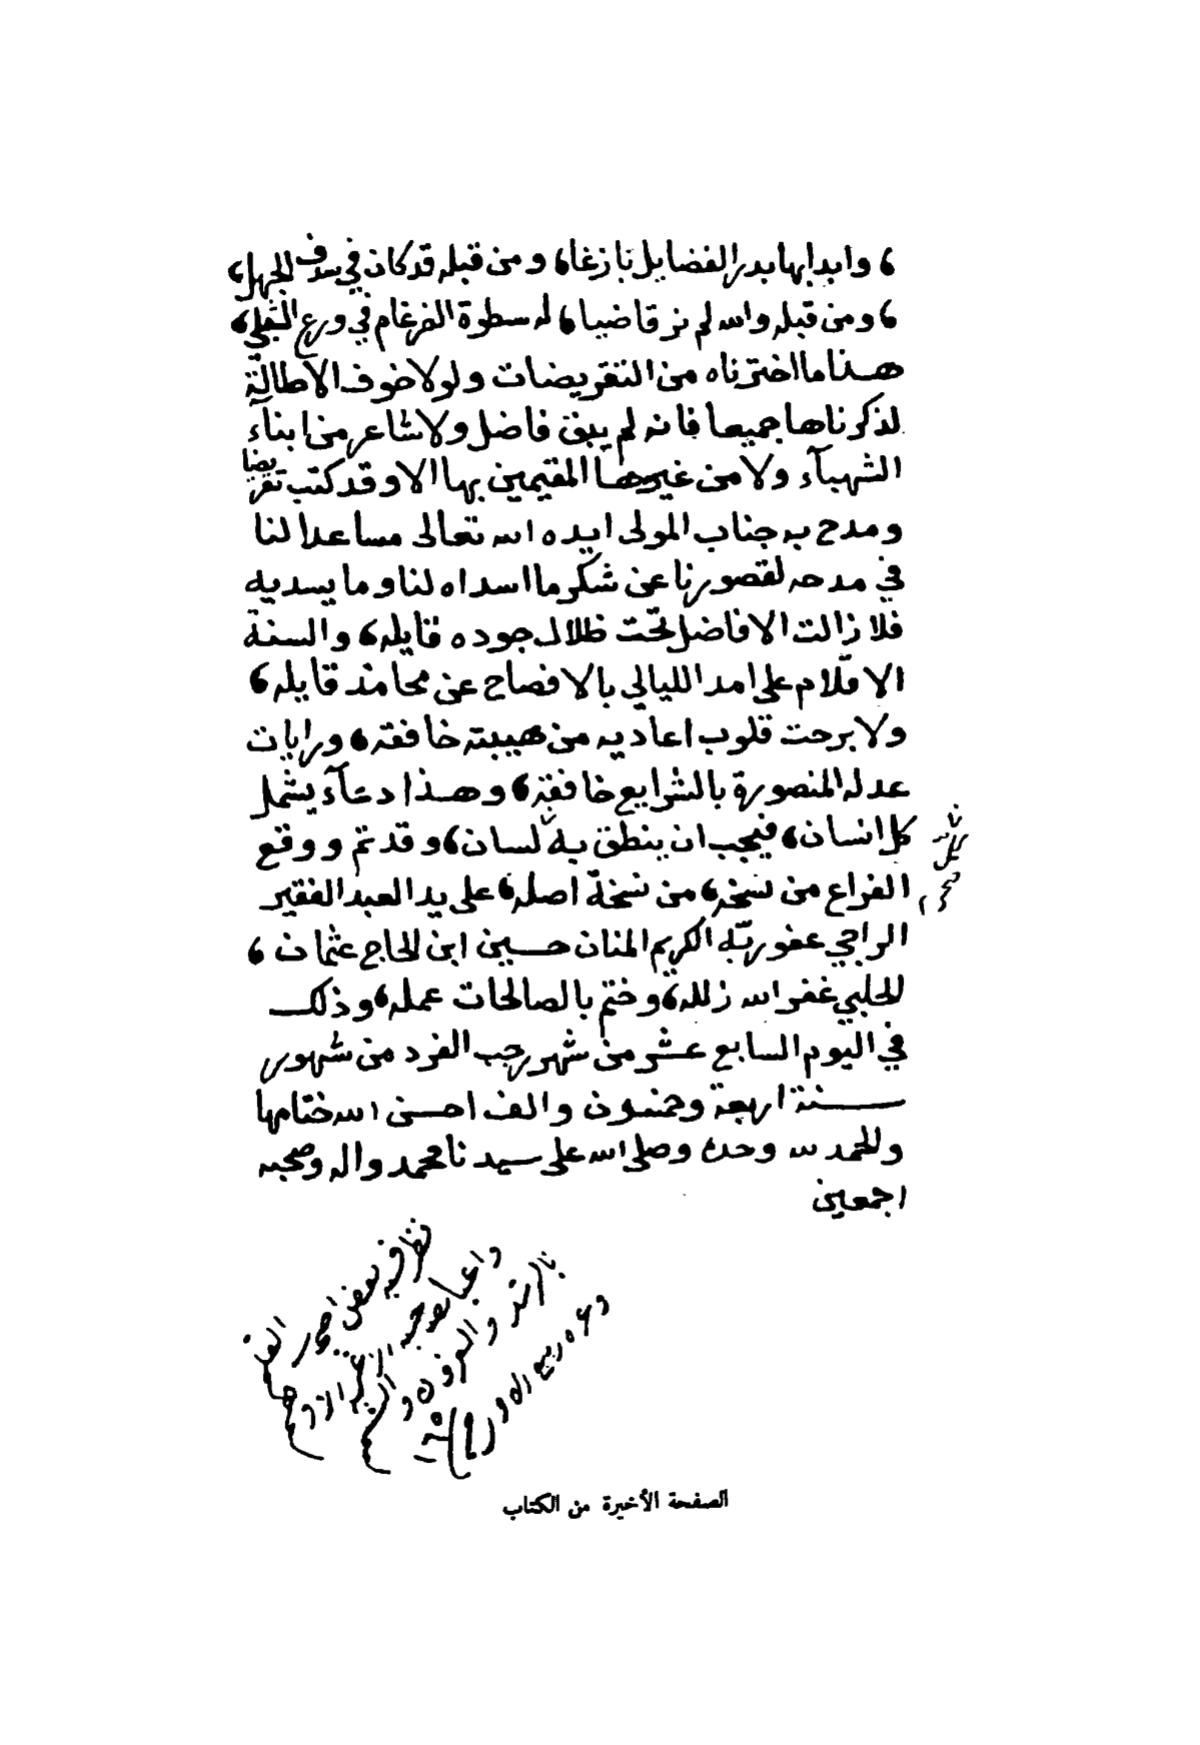 ، وابدا بها بدر الفضايل بازغا، ومن قبله قد كان في سدف الجهل،
، ومن قبله والله لم نر قاضيا، له سطوة الضرغام في ورع الشبلي،
هذا ما اخترناه من التقريضات ولولا خوف الاطالة
لذكرناها جميعا فانه لم يبق فاضل ولا شاعر من ابناء
الشهبآء ولا من غيرها المقيمين بها الا وقد كتب تقريضا
ومدح به جناب المولى ايده الله تعالى مساعدا لنا
في مدحه لقصورنا عن شكر ما اسداه لنا وما يسديه
فلا زالت الافاضل تحت ظلال جوده قايله، والسنة
الاقلام على امد الليالي بالافصاح عن محامده قايله،
ولا برحت قلوب اعاديه من هيبته خافقه، ورايات
عدله المنصورة بالشرايع خافقه، وهذا دعآء يشمل
كل انسان، فيجب ان ينطق به كل لسان، وقد تم ووقع
الفراغ من نسخه، من نسخة اصله، على يد العبد الفقير
الراجي عفو ربه الكريم المنان حسين ابن الحاج عثمان،
الحلبي غفر الله زلله، وختم بالصالحات عمله، وذلك
في اليوم السابع عشر من شهر رجب الفرد من شهور
سنة اربعة وخمسون والف احسن الله ختامها
والحمد لله وحده وصلى الله على سيدنا محمد واله وصحبه
اجمعين
نظر فيه
الصفحة الأخيرة من الكتاب